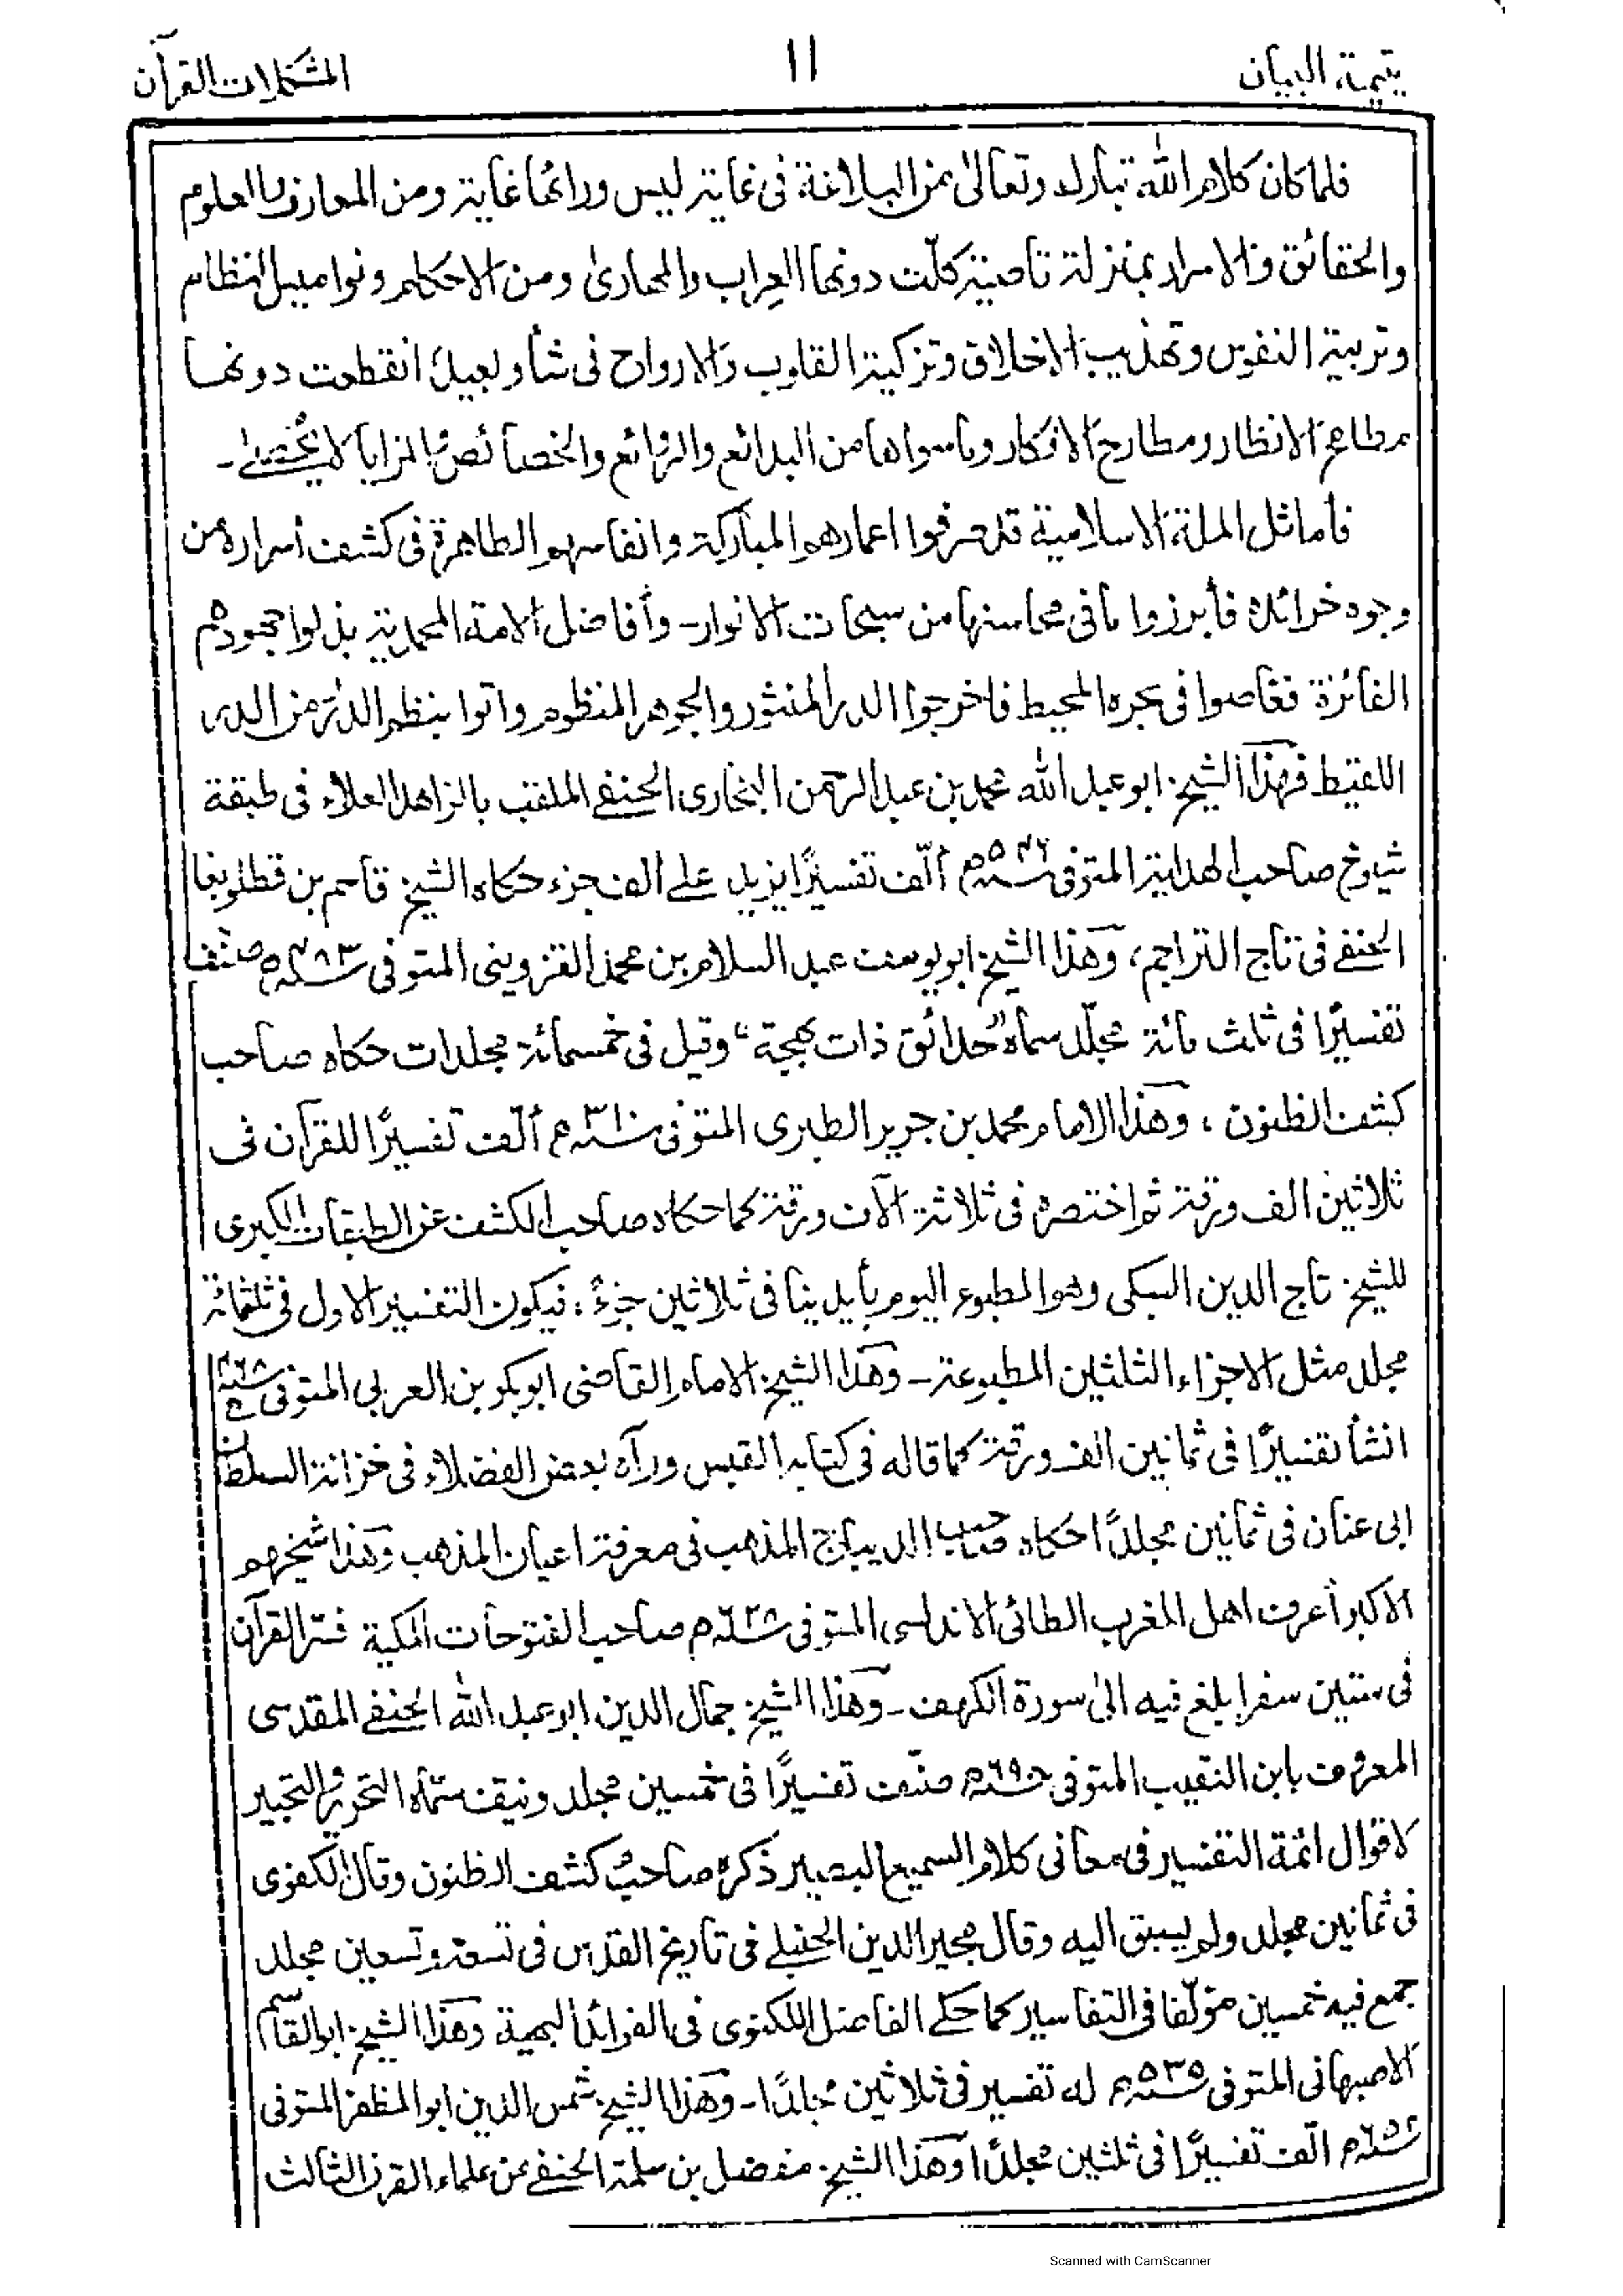 يتيمة البيان
١١
المشكلات القرآن
فلما كان كلام الله تبارك وتعالى من البلاغة فى غاية ليس ورائها غاية ومن المعارف والعلوم
والحقائق والاسرار بمنزلة قاصية كلّت دونها العراب والمهارى ومن الاحكام ونواميس النظام
وتربية النفوس وتهذيب الاخلاق وتزكية القلوب والارواح فى شأو بعيد انقطعت دونها
مطامح الانظار ومطارح الافكار وما سواها من البدائع والروائع والخصائص والمزايا لا يحصى ـ
فأماثل الملة الاسلامية قد صرفوا اعمارهم المباركة وانفاسهم الطاهرة فى كشف أسراره من
وجوه خرائده فأبرزوا ما فى محاسنها من سبحات الانوار ـ وأفاضل الامة المحمدية بذلوا جهودهم
الفائزة فغاصوا فى بحره المحيط فاخرجوا الدر المنثور والجوهر المنظوم واتوا بنظم الدرر من الدر
اللاقيط فهذا الشيخ ابو عبد الله محمد بن عبد الرحمن البخارى الحنفى الملقب بالزاهد العلاء فى طبقة
شيوخ صاحب الهداية المتوفى سنة ٥٤٦ھ ألّف تفسيرًا يزيد على ألف جزء حكاه الشيخ قاسم بن قطلوبغا
الحنفى فى تاج التراجم، وهذا الشيخ ابو يوسف عبد السلام بن محمد القزوينى المتوفى سنة ٤٨٣ھ صنّف
تفسيرًا فى ثلث مائة مجلّد سماه "حدائق ذات بهجة" وقيل فى خمسمائة مجلدات حكاه صاحب
كشف الظنون، وهذا الامام محمد بن جرير الطبرى المتوفى سنة ٣١٠ھ ألّف تفسيرًا للقرآن فى
ثلاثين الف ورقة ثم اختصره فى ثلاثة آلاف ورقة كما حكاه صاحب الكشف عن الطبقات الكبرى
للشيخ تاج الدين السبكى وهو المطبوع اليوم بأيدينا فى ثلاثين جزءً، فيكون التفسير الاول فى ثلثمائة
مجلد مثل الاجزاء الثلثين المطبوعة ـ وهذا الشيخ الامام القاضى ابو بكر بن العربى المتوفى
انشأ تفسيرًا فى ثمانين الف ورقة كما قاله فى كتابه القبس ورآه بعض الفضلاء فى خزانة السلطان
ابى عنان فى ثمانين مجلدًا حكاه صاحب الديباج المذهب فى معرفة اعيان المذهب وهذا شيخهم
الاكبر أعرف اهل المغرب الطائى الاندلسى المتوفى سنة ٦٣٨ھ صاحب الفتوحات المكية فسّر القرآن
فى ستين سفرا بلغ فيه الى سورة الكهف ـ وهذا الشيخ جمال الدين ابو عبد الله الحنفى المقدسى
المعروف بابن النقيب المتوفى سنة ٦٩٨ھ صنّف تفسيرًا فى خمسين مجلد ونيف سمّاه التحرير والتحبير
لاقوال ائمة التفسير فى معانى كلام السميع البصير ذكره صاحب كشف الظنون وقال الكفوى
فى ثمانين مجلد ولم يسبق اليه وقال مجير الدين الحنبلى فى تاريخ القدس فى تسعة وتسعين مجلد
جمع فيه خمسين مؤلّفا فى التفاسير كما حكى الفاضل اللكنوى فى الفوائد البهية وهذا الشيخ ابو القاسم
الاصبهانى المتوفى سنة ٥٣٥ھ له تفسير فى ثلاثين مجلدًا ـ وهذا الشيخ شمس الدين ابو المظفر المتوفى
سنة ٦٥٤ھ الّف تفسيرًا فى ثلثين مجلدًا وهذا الشيخ مفضل بن سلمة الحنفى من علماء القرن الثالث
Scanned with CamScanner